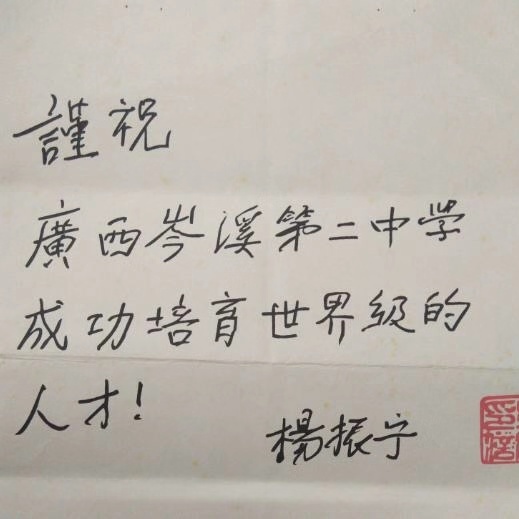 謹祝
廣西岑溪第二中学
成功培育世界级的
人才!
楊振宁